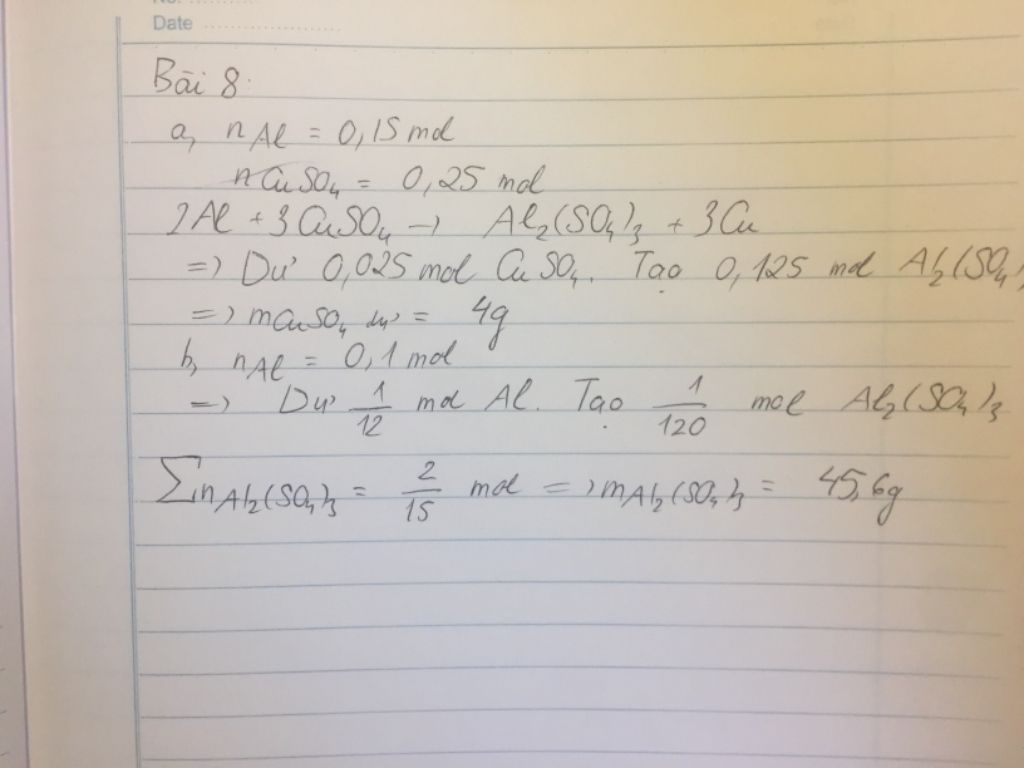 No. ............
Date ........................
Bài 8:
a, nAl = 0,15 mol
nCuSO₄ = 0,25 mol
2Al + 3CuSO₄ → Al₂(SO₄)₃ + 3Cu
=> Dư 0,025 mol CuSO₄. Tạo 0,125 mol Al₂(SO₄)
=> mCuSO₄ dư = 4g
b, nAl = 0,1 mol
=> Dư 1/12 mol Al. Tạo 1/120 mol Al₂(SO₄)₃
∑nAl₂(SO₄)₃ = 2/15 mol => mAl₂(SO₄)₃ = 45,6g